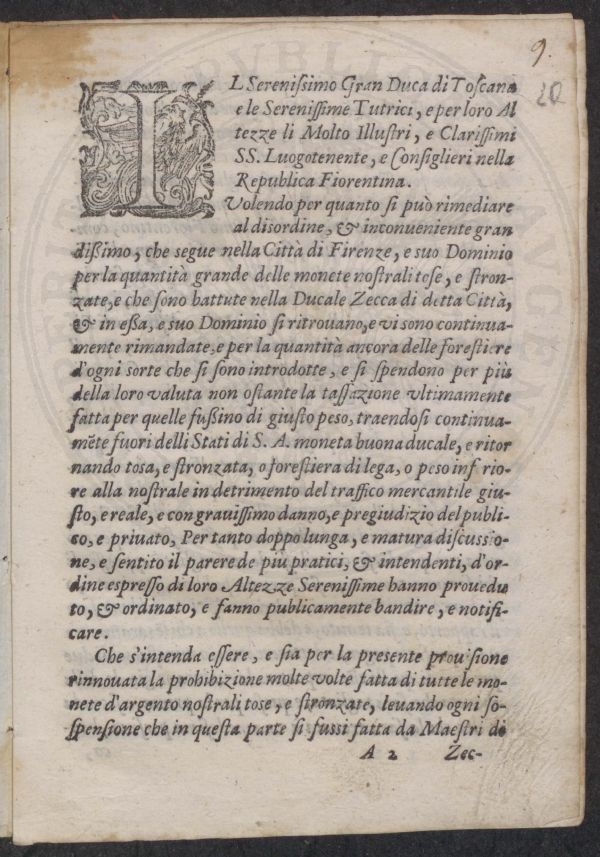 9.
20
IL Serenissimo Gran Duca di Toscana
e le Serenissime Tutrici, e per loro Al
tezze li Molto Illustri, e Clarissimi
SS. Luogotenente, e Consiglieri nella
Republica Fiorentina.
Volendo per quanto si può rimediare
al disordine, & inconueniente gran
dißimo, che segue nella Città di Firenze, e suo Dominio
per la quantità grande delle monete nostrali tose, e stron-
zate, e che sono battute nella Ducale Zecca di detta Città,
& in eßa, e suo Dominio si ritrouano, e vi sono continua-
mente rimandate, e per la quantità ancora delle forestiere
d'ogni sorte che si sono introdotte, e si spendono per più
della loro valuta non ostante la tassazione vltimamente
fatta per quelle fußino di giusto peso, traendosi continua-
mẽte fuori delli Stati di S. A. moneta buona ducale, e ritor
nando tosa, e stronzata, o forestiera di lega, o peso inf rio-
re alla nostrale in detrimento del traffico mercantile giu-
sto, e reale, e con grauissimo danno, e pregiudizio del publi-
co, e priuato, Per tanto doppo lunga, e matura discussio-
ne, e sentito il parere de piu pratici, & intendenti, d'or-
dine espresso di loro Altezze Serenissime hanno prouedu
to, & ordinato, e fanno publicamente bandire, e notifi-
care.
Che s'intenda essere, e sia per la presente prouisione
rinnouata la prohibizione molte volte fatta di tutte le mo-
nete d'argento nostrali tose, e stronzate, leuando ogni so-
spensione che in questa parte si fussi fatta da Maestri di
A 2 Zec-